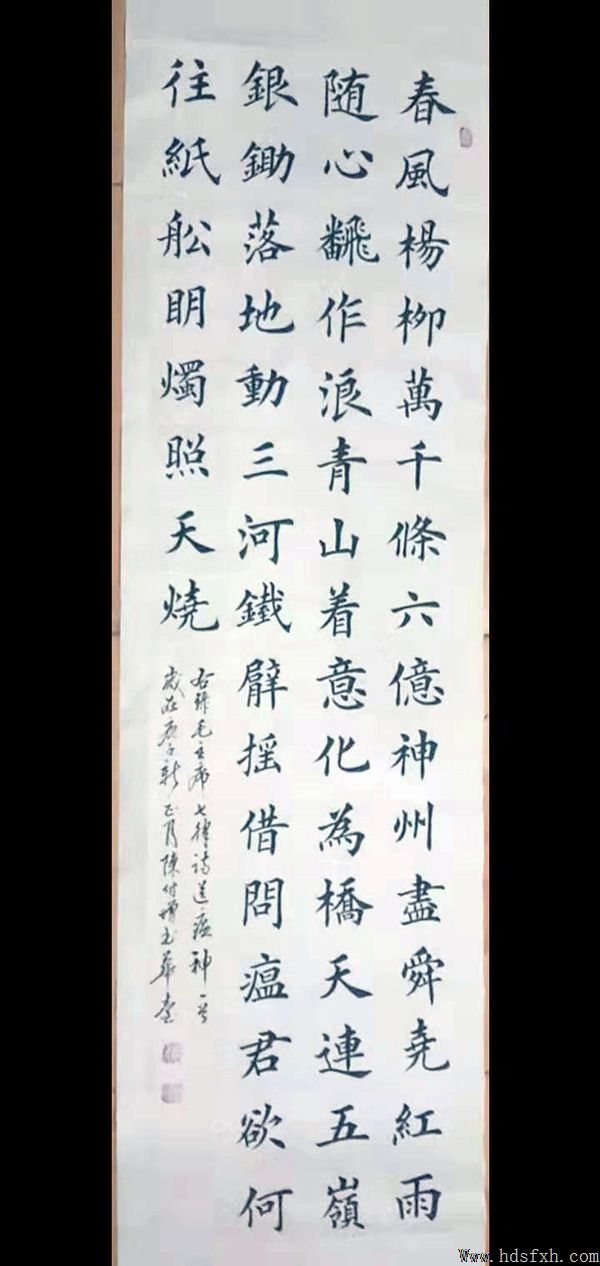 春風楊柳萬千條六億神州盡舜堯紅雨
随心飜作浪青山着意化為橋天連五嶺
銀鋤落地動三河鐵臂摇借問瘟君欲何
往紙船明燭照天燒
右録毛主席七律詩送瘟神一首
歲在庚子新正月陳付增書
Www.hdsfxh.com